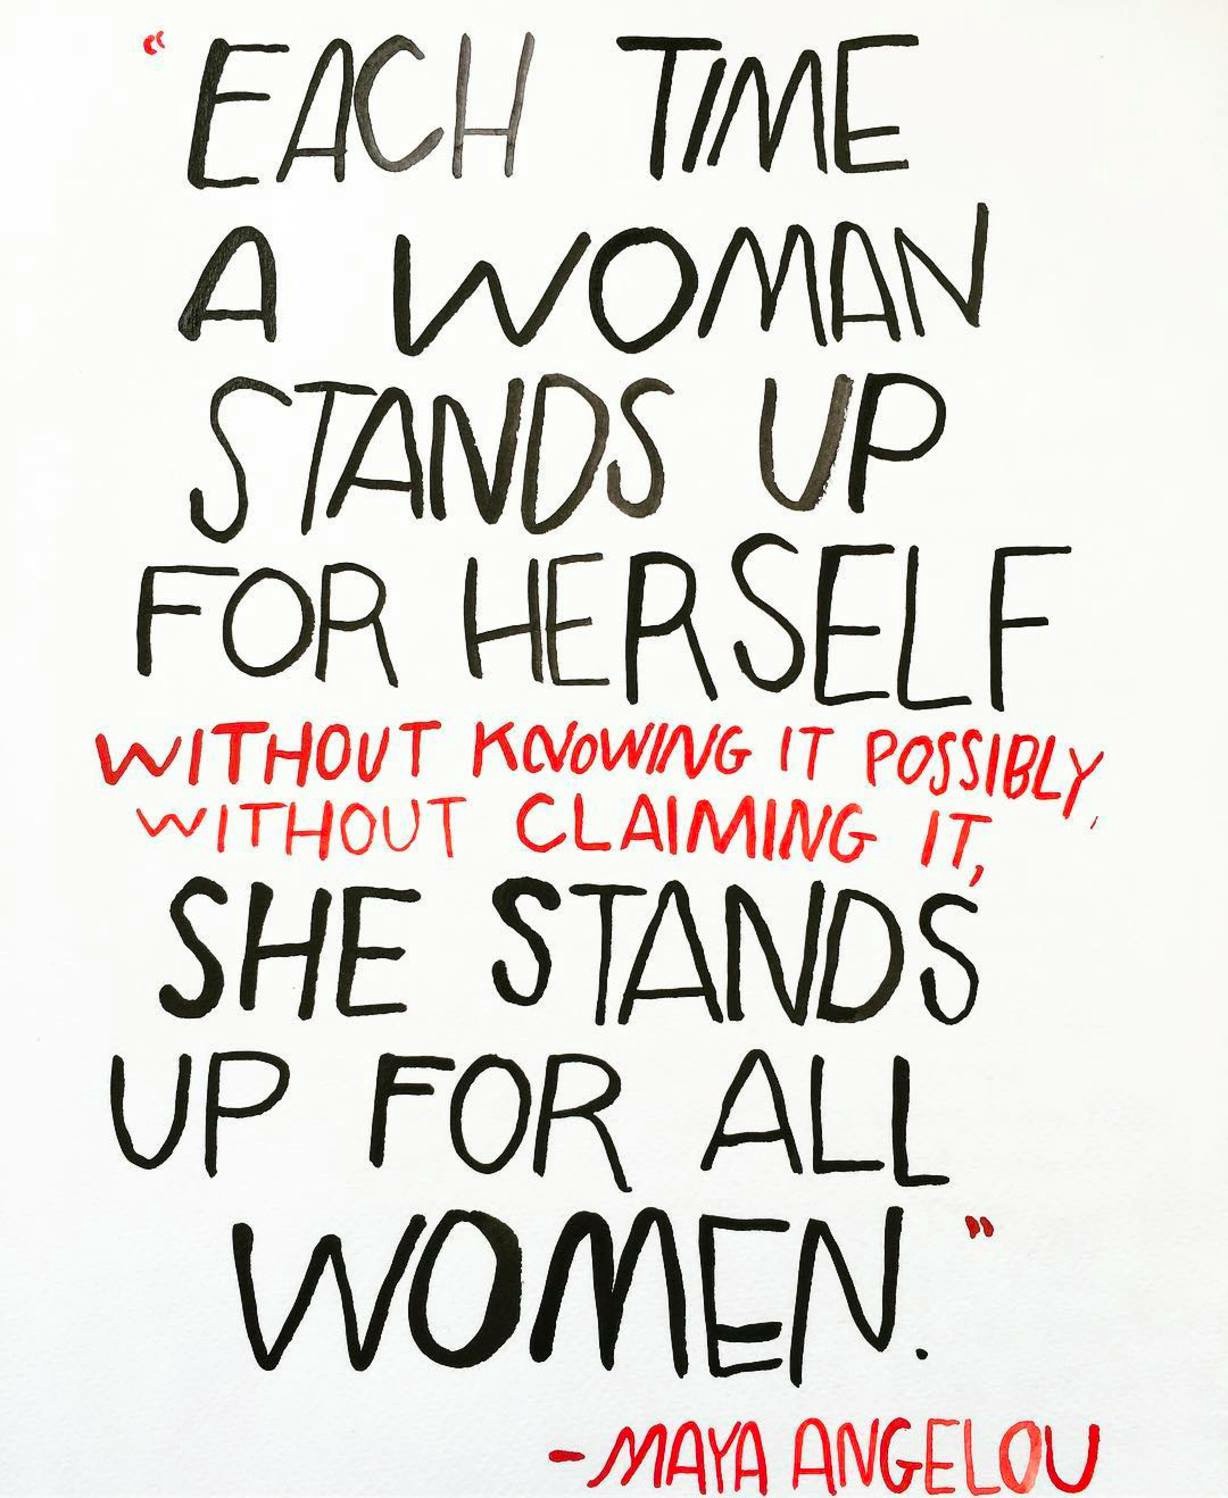 “EACH TIME
A WOMAN
STANDS UP
FOR HERSELF
WITHOUT KNOWING IT POSSIBLY,
WITHOUT CLAIMING IT,
SHE STANDS
UP FOR ALL
WOMEN.”
-MAYA ANGELOU